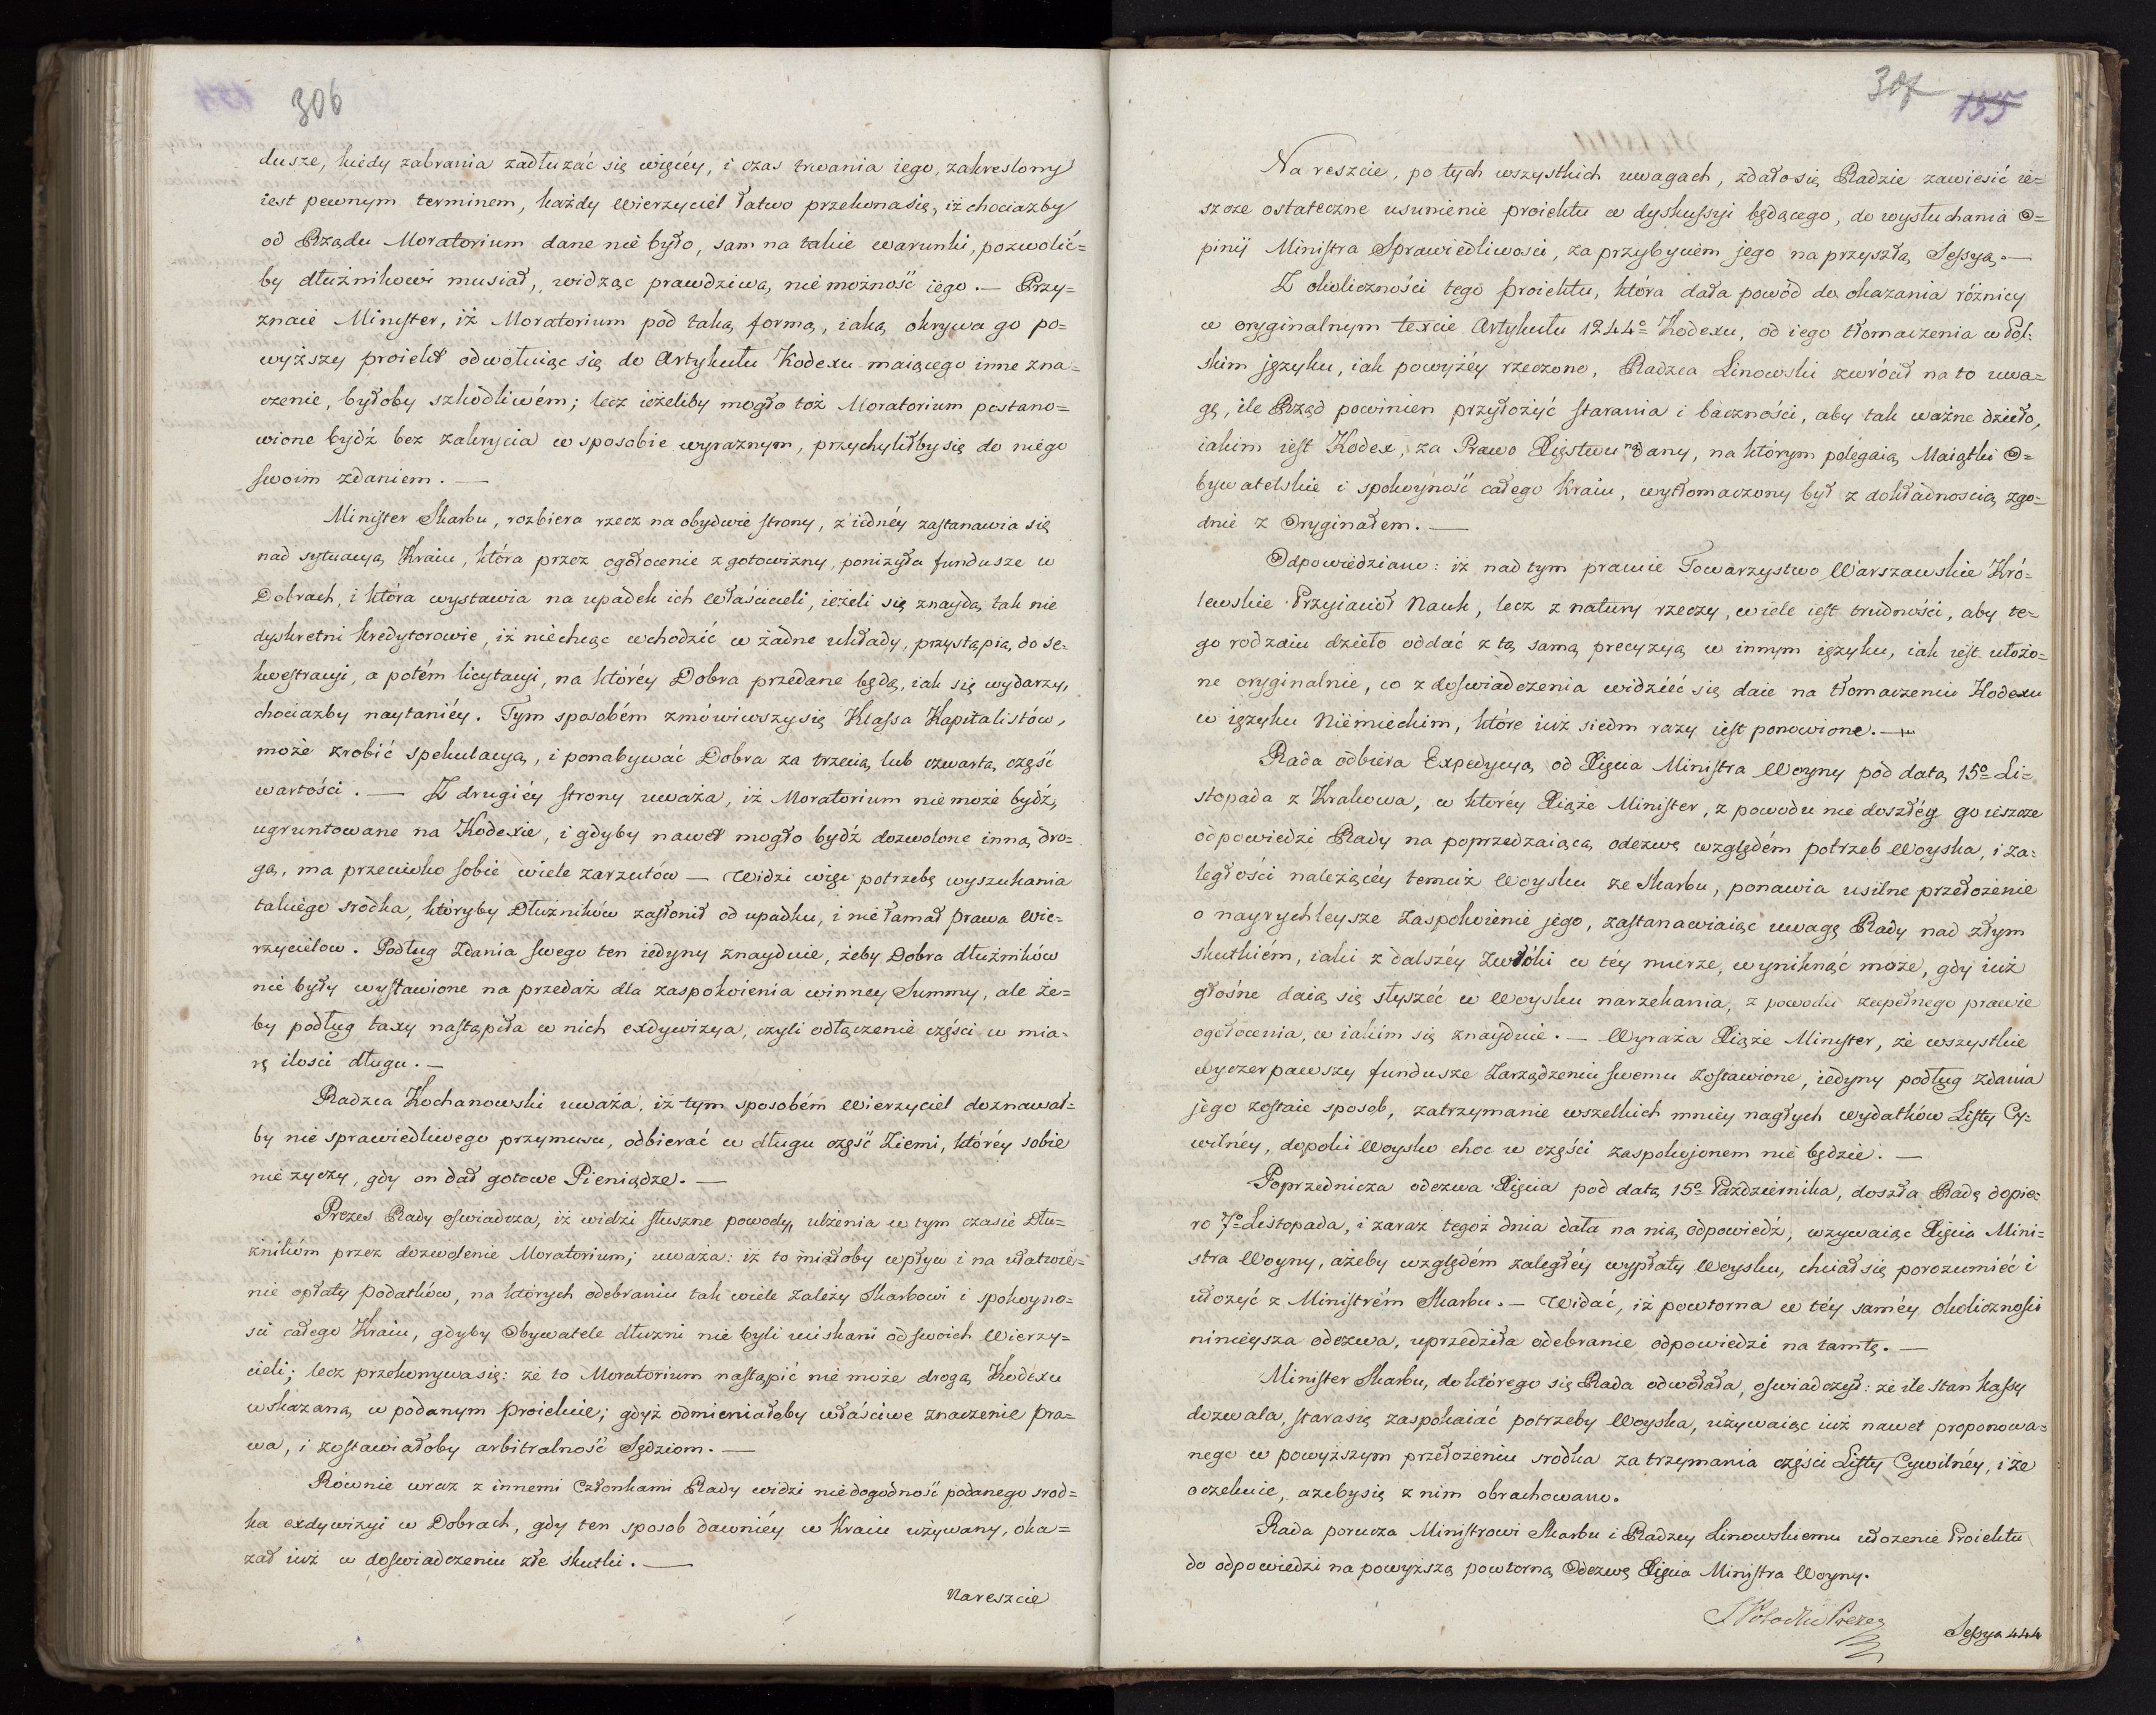 306
dusze, kiedy zabrania zadłużać się więcéy, i czas trwania iego, zakreslony
iest pewnym terminem, każdy Wierzyciel łatwo przekona się, iż chociazby
od Rządu Moratorium dane nie było, sam na takie warunki, pozwolić=
by dłużnikowi musiał, widząc prawdziwą niemożność iego. — Przy=
znaie Minister, iż Moratorium pod taką formą, iaką okrywa go po=
wyższy proiekt odwołuiąc się do Artykułu Kodexu maiącego inne zna=
czenie, byłoby szkodliwém; lecz ieżeliby mogło toż Moratorium postano=
wione bydź bez zakrycia w sposobie wyraznym, przychyliłby się do niego
swoim zdaniem. —
Minister Skarbu, rozbiera rzecz na obydwie strony, z iednéy zastanawia się
nad sytuacyą Kraiu, która przez ogołocenie z gotowizny, poniżyła fundusze w
Dobrach, i która wystawia na upadek ich Właścicieli, ieżeli się znaydą tak nie
dyskretni kredytorowie, iż niechcąc wchodzić w żadne układy, przystąpią do se=
kwestracyi, a potém licytacyi, na któréy Dobra przedane będą, iak się wydarzy,
chociazby naytaniéy. Tym sposobém zmówiwszy się Klassa Kapitalistów,
może zrobić spekulacyą, i ponabywać Dobra za trzecią lub czwartą część
wartości. — Z drugiéy strony uważa, iż Moratorium niemoże bydź,
ugruntowane na Kodexie, i gdyby nawet mogło bydź dozwolone inną dro=
gą, ma przeciwko sobie wiele zarzutów — Widzi więc potrzebę wyszukania
takiego srodka, któryby Dłużników zasłonił od upadku, i nie łamał prawa Wie=
rzycielow. Podług Zdania swego ten iedyny znayduie, żeby Dobra dłużników
nie były wystawione na przedaż dla zaspokoienia winney Summy, ale że=
by podług taxy nastąpiła w nich exdywizya, czyli odłączenie części w mia=
rę ilosci długu. —
Radzca Kochanowski uważa, iż tym sposobém Wierzyciel doznawał=
by niesprawiedliwego przymusu, odbierać w długu część Ziemi, któréy sobie
nie zyczy, gdy on dał gotowe Pieniądze. —
Prezes Rady oswiadcza, iż widzi słuszne powody, ulżenia w tym czasie Dłu=
żnikóm przez dozwolenie Moratorium; uważa: iż to miałoby wpływ i na ułatwie=
nie opłaty podatków, na których odebraniu tak wiele zależy Skarbowi i spokoyno=
sci całego Kraiu, gdyby Obywatele dłużni nie byli uciskani od swoich Wierzy=
cieli; lecz przekonywa się: że to Moratorium nastąpić nie może drogą Kodexu
wskazaną w podanym proiekcie; gdyż odmieniałoby właściwe znaczenie pra=
wa, i zostawiałoby arbitralność Sędziom. —
Równie wraz z innemi Członkami Rady widzi niedogodność podanego srod=
ka exdywizyi w Dobrach, gdy ten sposob dawniéy w Kraiu używany, oka=
zał iuż w doswiadczeniu złe skutki. —
Nareszcie
307 155
Na reszcie, po tych wszystkich uwagach, zdało się Radzie zawiesić ie=
szcze ostateczne usunienie proiektu w dyskussyi będącego, do wysłuchania O=
pinij Ministra Sprawiedliwosci, za przybyciem jego na przyszłą Sessyą. —
Z okoliczności tego proiektu, która dała powód do okazania różnicy
w oryginalnym texcie Artykułu 1244º Kodexu, od iego tłomaczenia w Pol=
skim języku, iak powyżéy rzeczono, Radzca Linowski zwrócił na to uwa=
gę, ile Rząd powinien przyłożyć starania i baczności, aby tak ważne dzieło,
iakim iest Kodex, za Prawo Xięstwu nadany, na którym polegaią Maiątki O=
bywatelskie i spokoyność całego Kraiu, wytłomaczony był z dokładnoscią zgo=
dnie z Oryginałem. —
Odpowiedziano: iż nad tym pracuie Towarzystwo Warszawskie Kró=
lewskie Przyiaciół Nauk, lecz z natury rzeczy, wiele iest trudności, aby te=
go rodzaiu dzieło oddać z tą samą precyzyą w innym ięzyku, iak iest ułożo=
ne oryginalnie, co z doswiadczenia widzieć się daie na tłomaczeniu Kodexu
w ięzyku Niemieckim, które iuż siedm razy iest ponowione. —
Rada odbiera Expedycyą od Xięcia Ministra Woyny pod datą 15º Li=
stopada z Krakowa, w któréy Xiąże Minister, z powodu nie doszłéy go ieszcze
odpowiedzi Rady na poprzedzaiącą odezwę względém potrzeb Woyska, i za=
ległości należącéy temuż Woysku ze Skarbu, ponawia usilne przełożenie
o nayrychleysze Zaspokoienie jego, zastanawiaiąc uwagę Rady nad złym
skutkiém, iaki z dalszéy Zwłóki w tey mierze, wyniknąć może, gdy iuż
głośne daią się słyszeć w Woysku narzekania, z powodu zupełnego prawie
ogołocenia, w iakim się znayduie. — Wyraża Xiąże Minister, że wszystkie
wyczerpawszy fundusze Zarządzeniu swemu zostawione, iedyny podług Zdania
jego zostaie sposob, zatrzymanie wszelkich mniéy nagłych wydatków Listy Cy=
wilnéy, dopoki Woysko choc w części zaspokojonem nie będzie. —
Poprzednicza odezwa Xięcia pod datą 15º Pazdziernika, doszła Radę dopie=
ro 7º Listopada, i zaraz tegoż dnia dała na nią odpowiedź, wzywaiąc Xięcia Mini=
stra Woyny, ażeby względém zaległéy wypłaty Woysku, chciał się porozumieć i
ułożyć z Ministrém Skarbu. — Widać, iż powtorna w téy saméy okolicznosci
ninieysza odezwa, uprzedziła odebranie odpowiedzi na tamtę. —
Minister Skarbu, do którego się Rada odwołała, oswiadczył: że ile stan Kassy
dozwala, stara się zaspokaiać potrzeby Woyska, używaiąc iuż nawet proponowa=
nego w powyższym przełożeniu srodka zatrzymania części Listy Cywilnéy, i że
oczekuie, azeby się z nim obrachowano.
Rada porucza Ministrowi Skarbu i Radzcy Linowskiemu ułożenie Proiektu
do odpowiedzi na powyższą powtorną Odezwę Xięcia Ministra Woyny.
S Potocki Prezes
Sessya 444